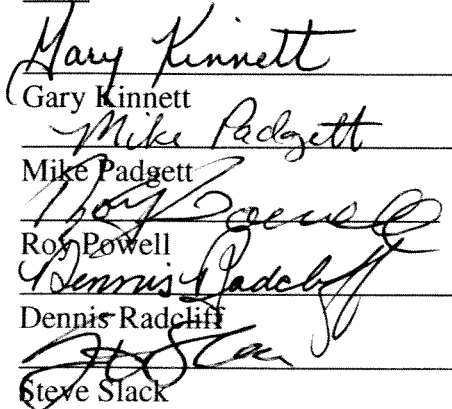 Gary Kinnett
Gary Kinnett
Mike Padgett
Mike Padgett
Roy Powell
Roy Powell
Dennis Radcliff
Dennis Radcliff
Steve Slack